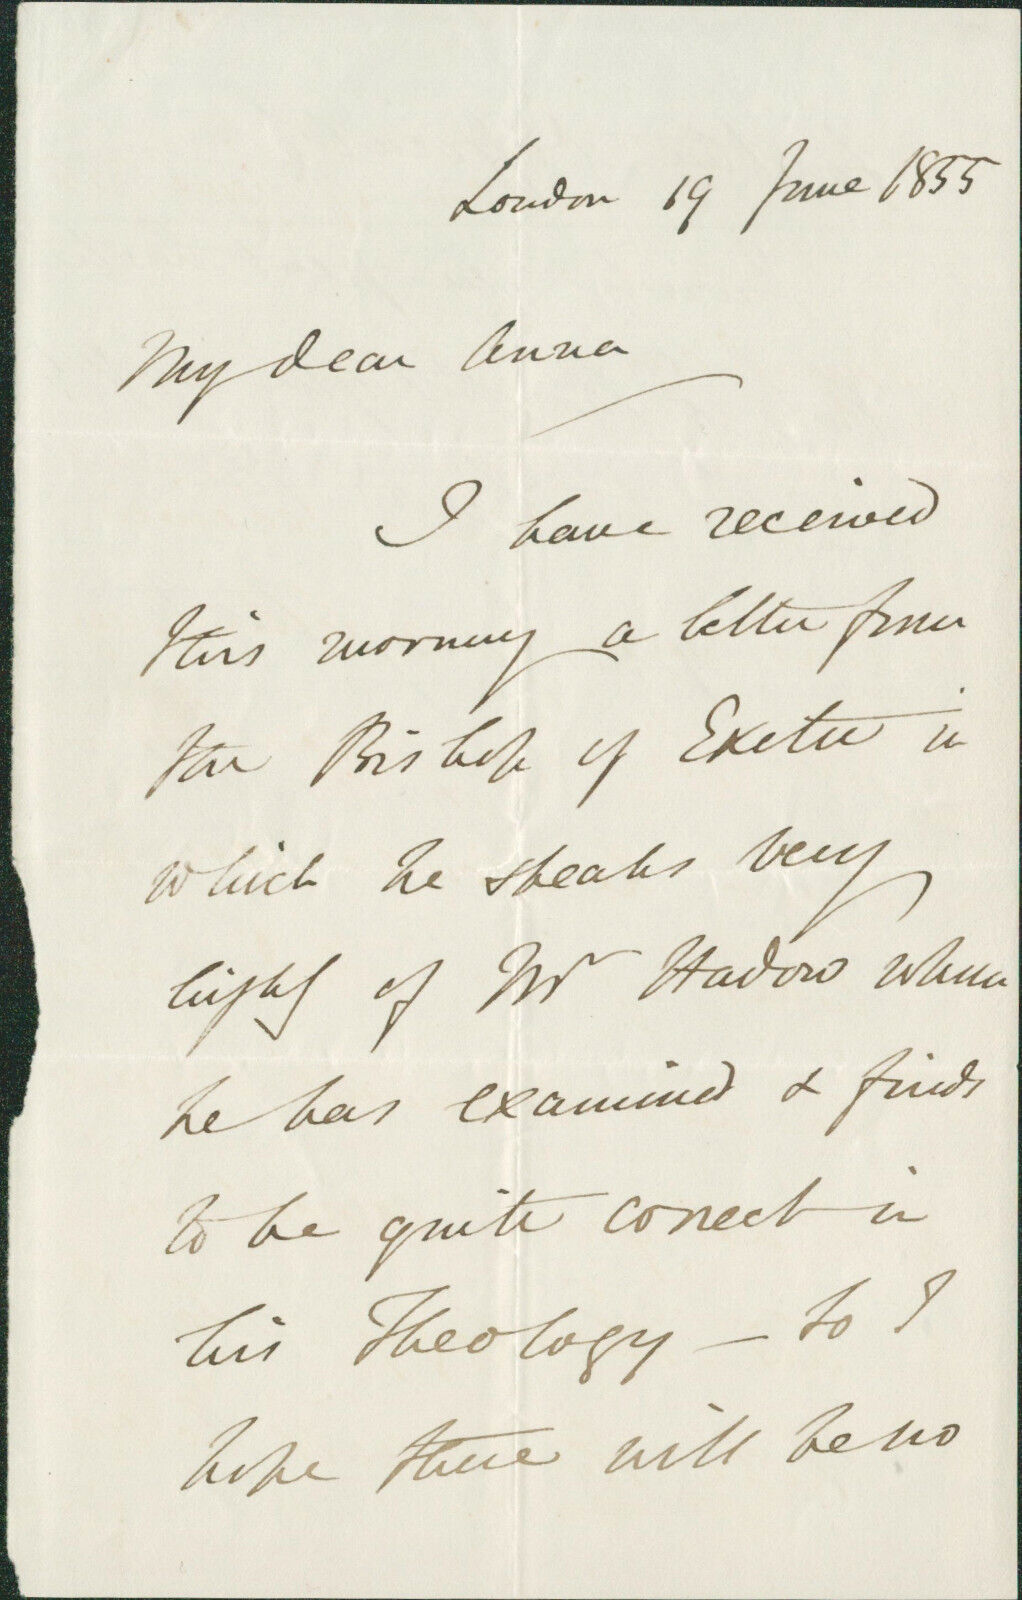 London 19 June 1855
My dear Anna
I have received
this morning a letter from
the Bishop of Exeter in
which he speaks very
highly of Mr Hadow whom
he has examined & finds
to be quite correct in
his Theology — So I
hope there will be no